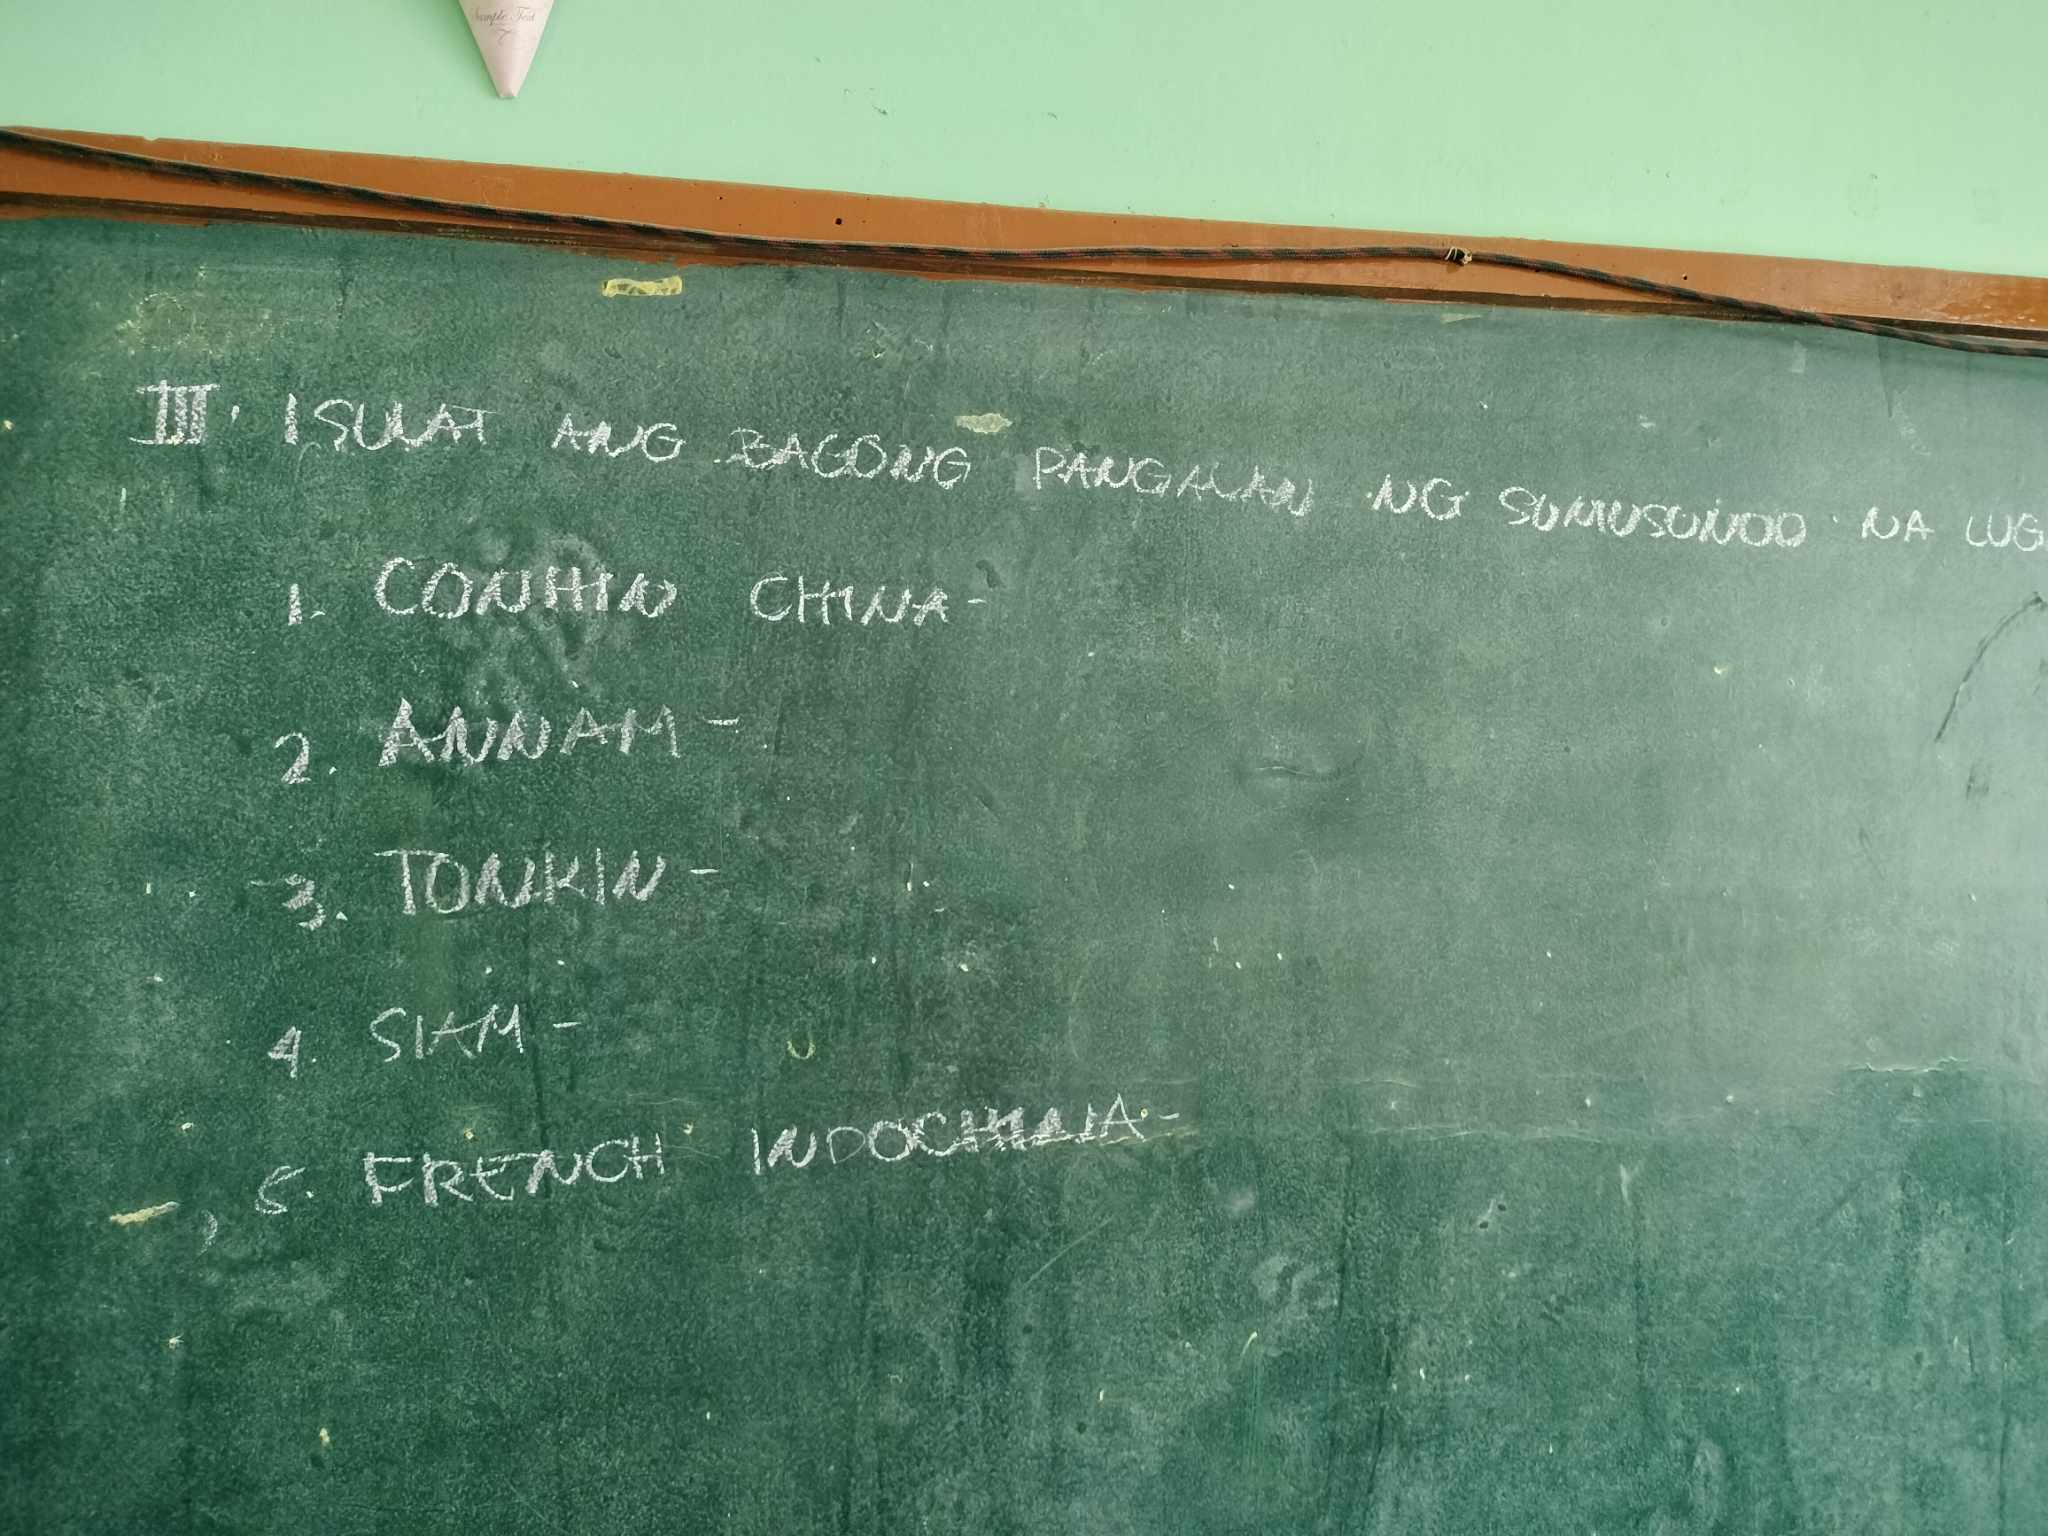 Sample Text
III. ISULAT ANG BAGONG PANGALAN NG SUMUSUNOD NA LUG
1. CONHIN CHINA-
2. ANNAM-
3. TONKIN-
4. SIAM-
5. FRENCH INDOCHINA-